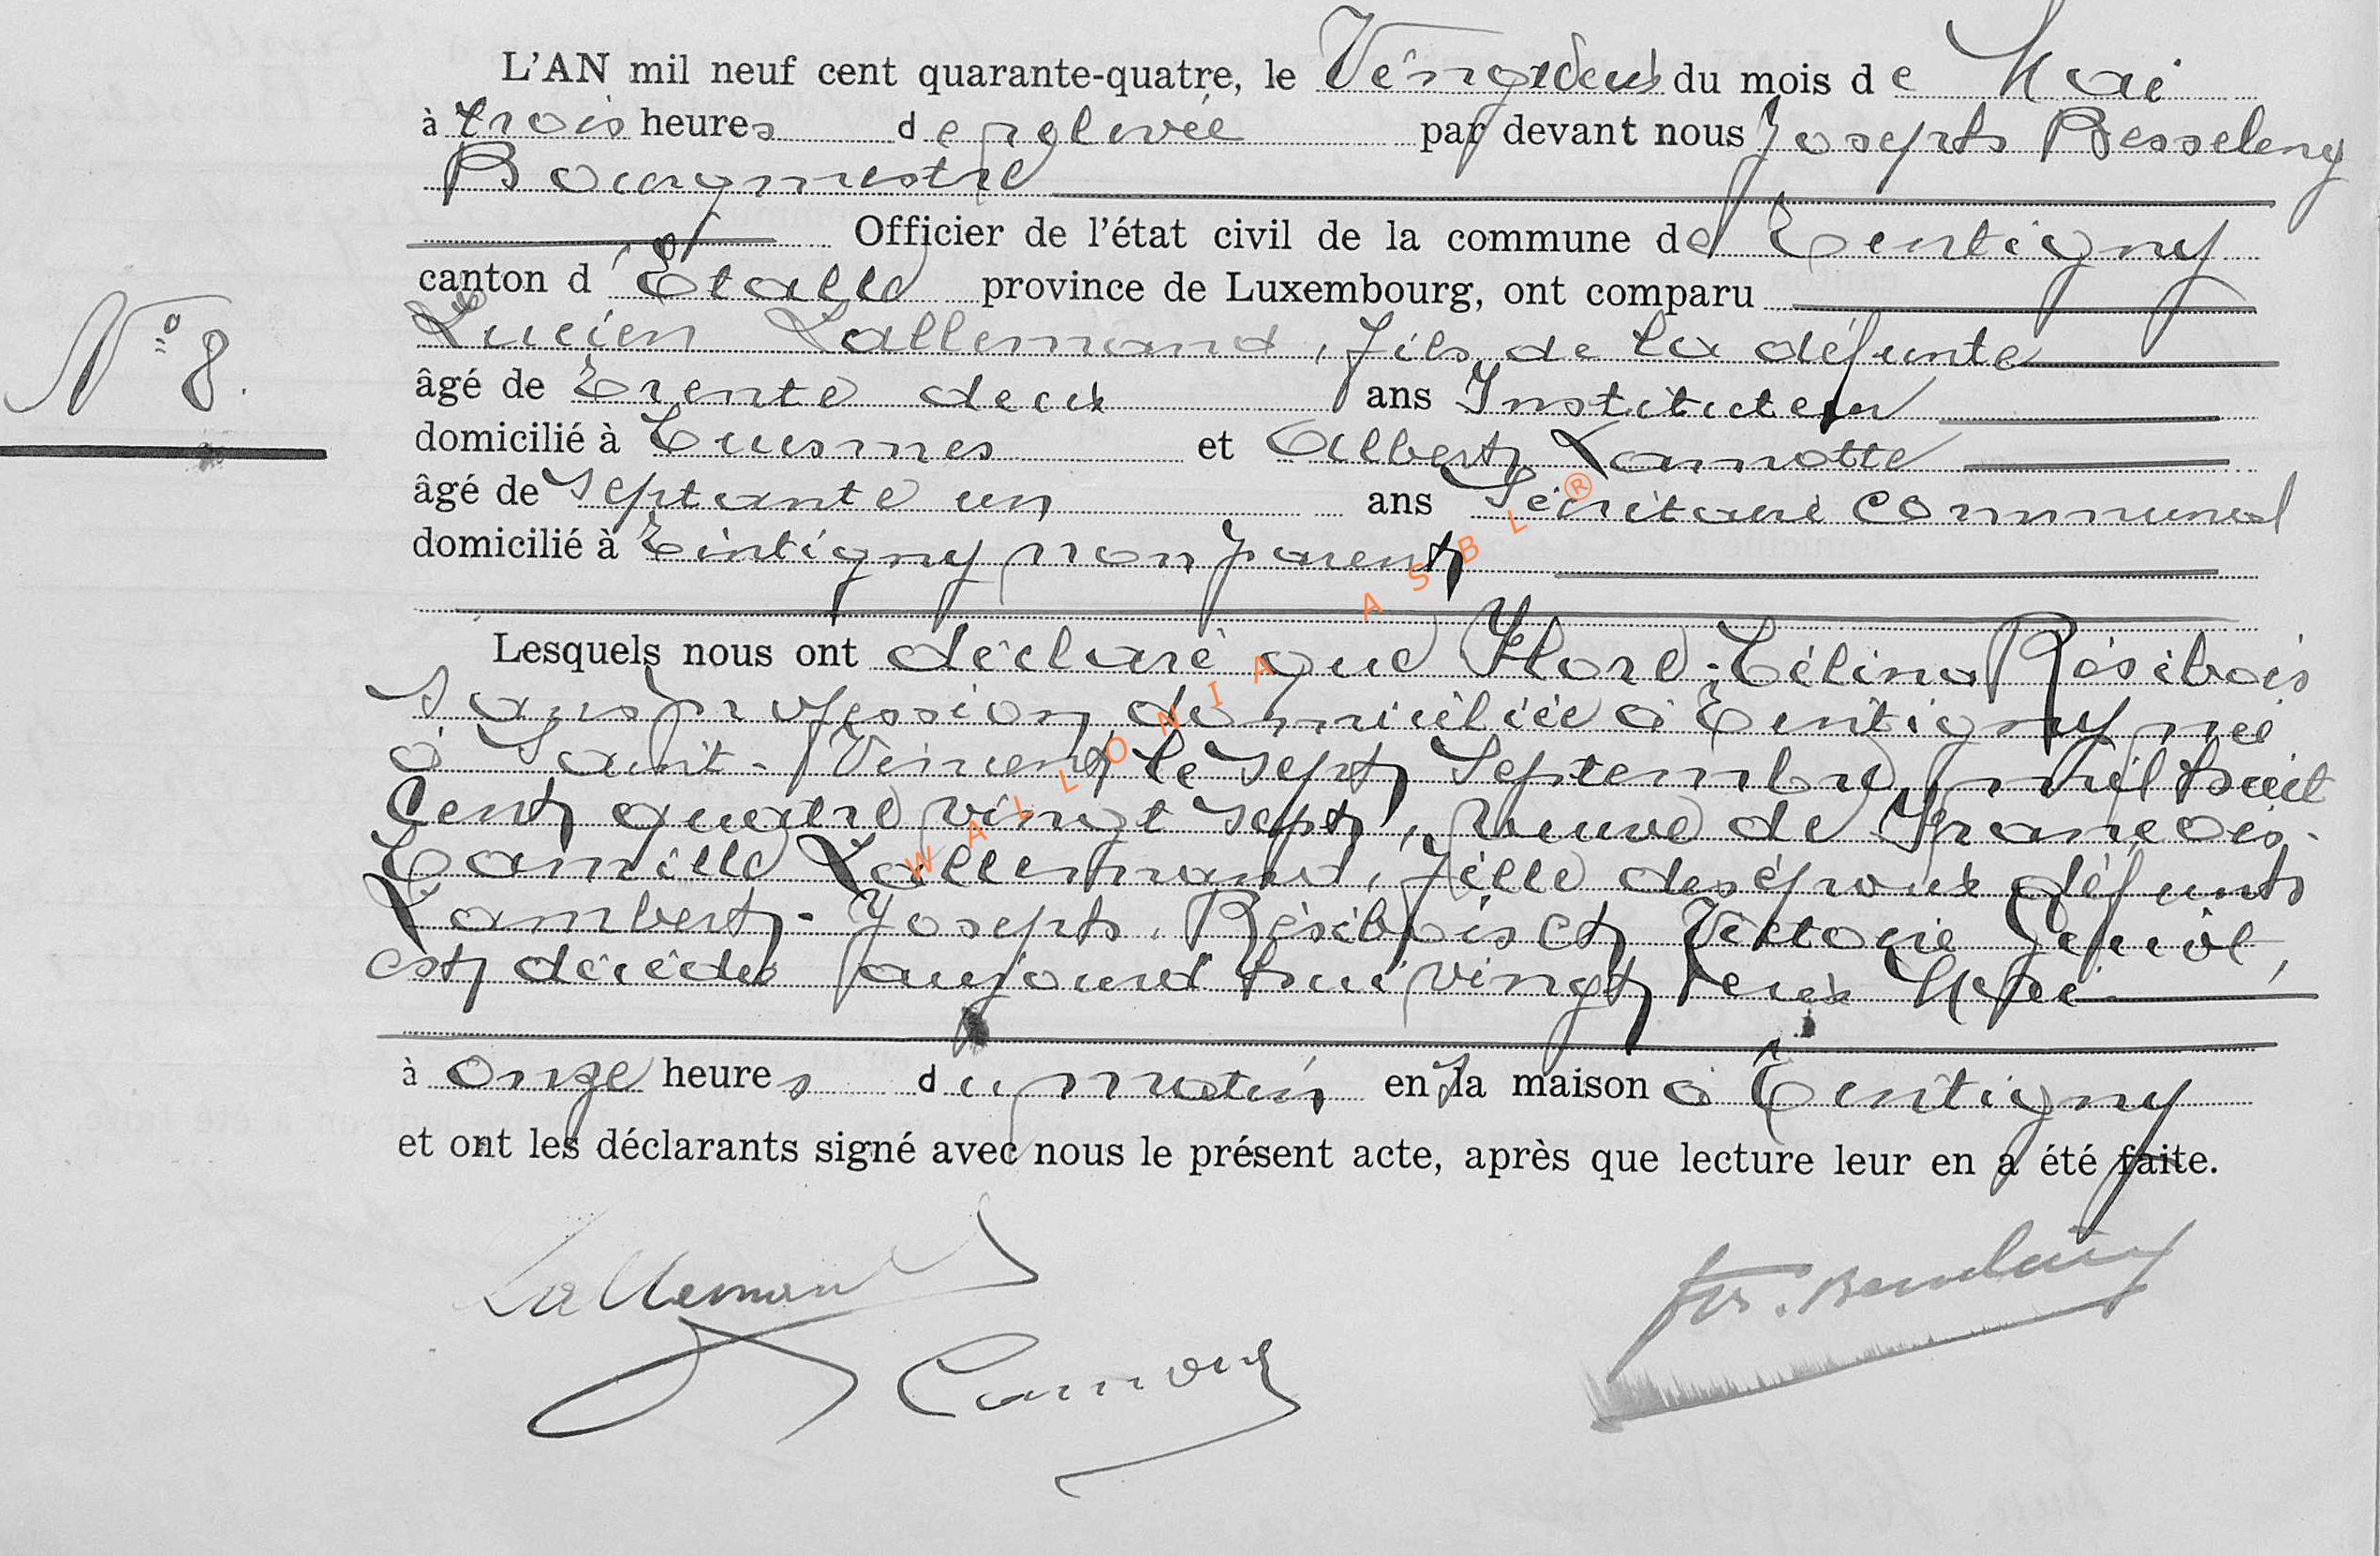 L'AN mil neuf cent quarante-quatre, le Vingtdeux du mois de Mai
à trois heures de relevée par devant nous Joseph Besseling
Bourgmestre
Officier de l'état civil de la commune de Tintigny
canton d'Etalle province de Luxembourg, ont comparu
N° 8.
Lucien Lallemand, fils de la défunte
âgé de Trente deux ans Instituteur
domicilié à Cuesmes et Albert Lamotte
âgé de septante un ans Secrétaire communal
domicilié à Tintigny non parent
Lesquels nous ont déclaré que Flore-Célina Résibois
sans profession domiciliée à Tintigny née
à Saint-Vincent le sept Septembre mil huit
cent quatre vingt sept, veuve de François-
Camille Lallemand, fille des époux défunts
Lambert-Joseph Résibois et Victorie
est décédée aujourd'hui vingt deux Mai
à onze heures du matin en sa maison à Tintigny
et ont les déclarants signé avec nous le présent acte, après que lecture leur en a été faite.
Lallemand
WALLONIA ASBL ®